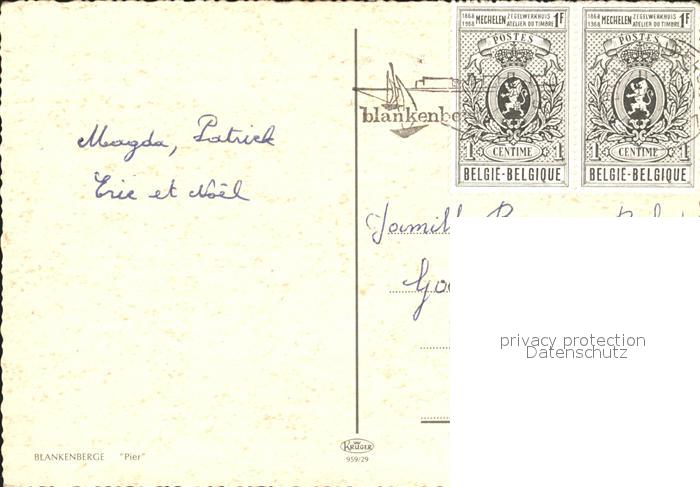 1868 MECHELEN ZEGELWERKHUIS 1F
1968 ATELIER DU TIMBRE
POSTES
1 CENTIME 1
BELGIË-BELGIQUE
1868 MECHELEN ZEGELWERKHUIS 1F
1968 ATELIER DU TIMBRE
POSTES
1 CENTIME 1
BELGIË-BELGIQUE
blankenbe
Magda, Patrick
Eric et Noël
privacy protection
Datenschutz
KRÜGER
959/29
BLANKENBERGE "Pier"